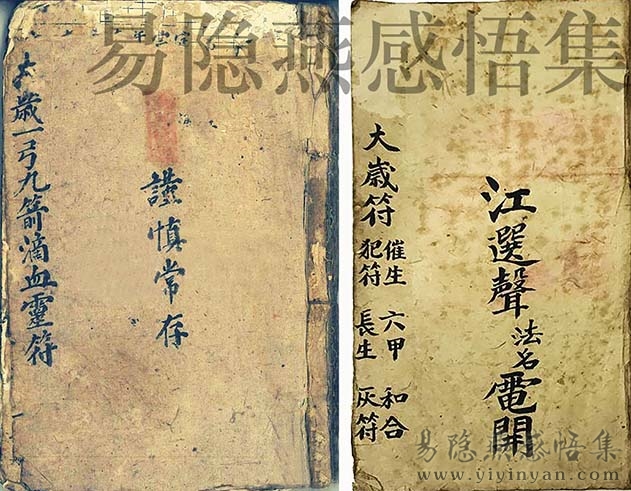 易隐燕感悟集
太歲一弓九箭滴血靈符
謹慎常存
大歲符
催生 六甲 和合
犯符 長生 灰符
江選聲 法名 電開
易隐燕感悟集
www.yiyinyan.com